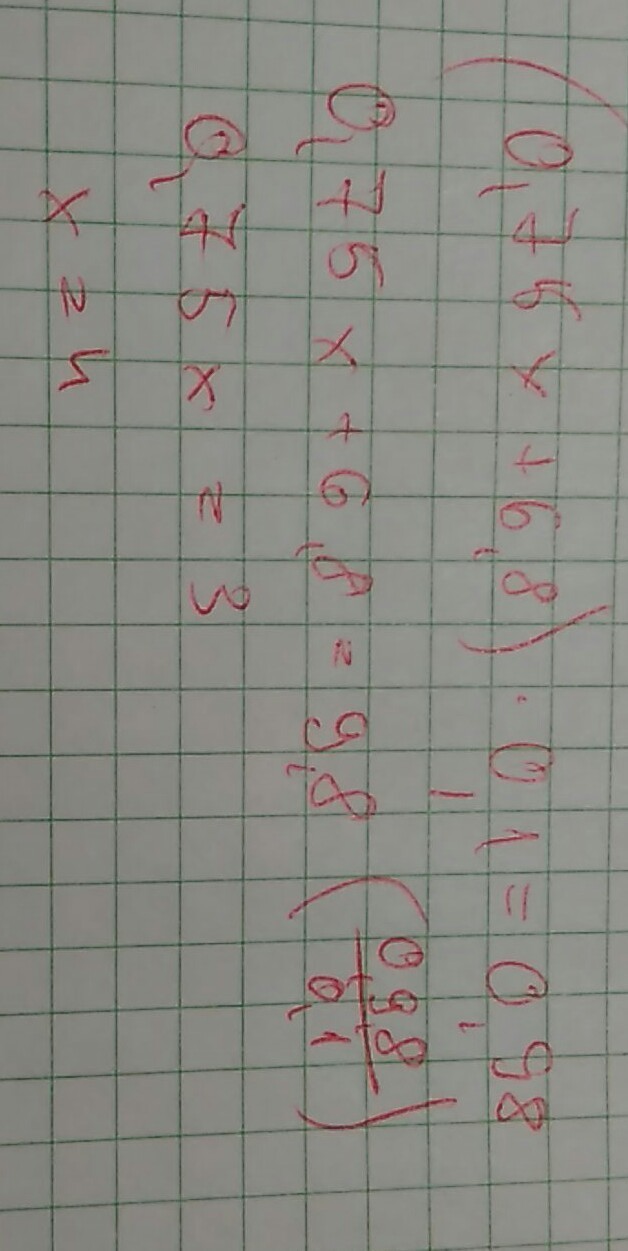 (0,75x+6,8)·0,1=0,98
0,75x+6,8=9,8 (0,98/0,1)
0,75x=3
x=4